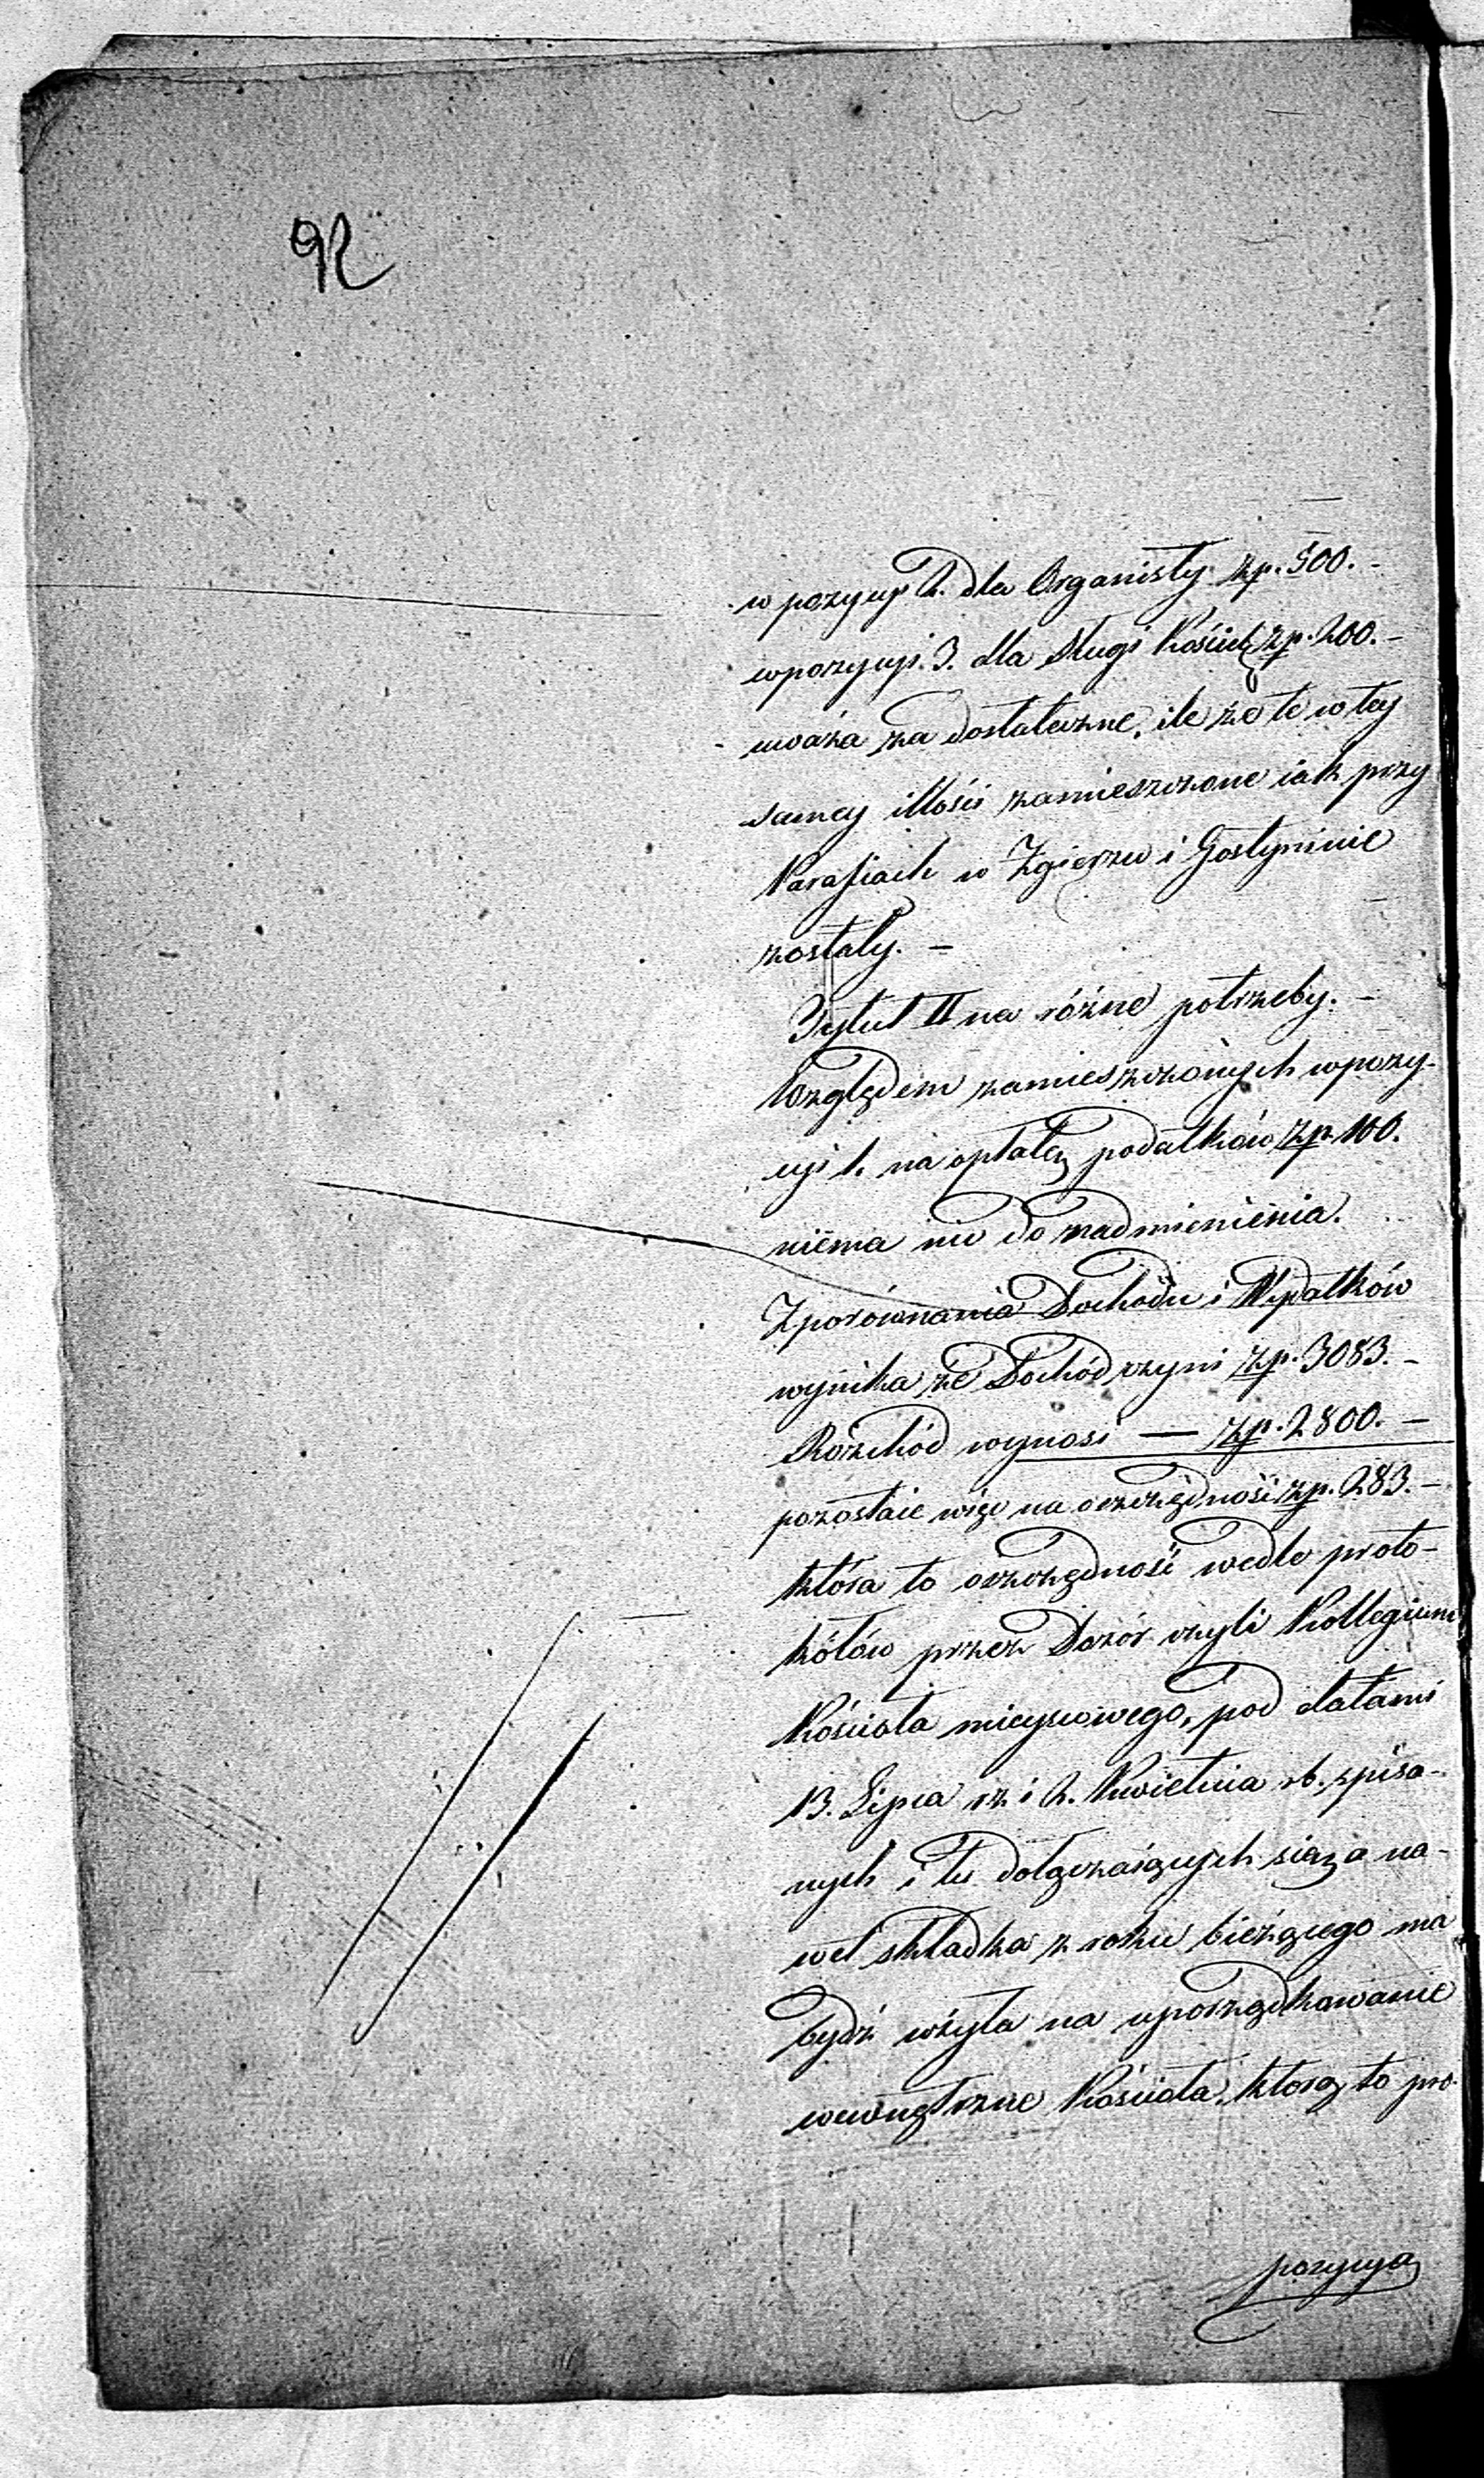 92
w pozycyi 2. dla Organisty zp. 500. -
w pozycyi. 3. dla Sługi Kościel zp. 200. -
uważa za dostateczne, ile że te w tey
samey illości zamieszczone iak przy
Parafiach w Zgierzu i Gostyninie
zostały. -
Tytuł II na różne potrzeby. -
Względem zamieszczonych w pozy-
cyi 1. na opłatę podatków zp. 100.
niema nic do nadmienienia.
Z porównania Dochodu i Wydatków
wynika że Dochód czyni zp. 3083. -
Rozchód wynosi — zp. 2800. -
pozostaie więc na oszczędność zp. 283. -
która to oszczędność wedle proto-
kółów przez Dozór czyli Kollegium
Kościoła mieyscowego, pod datami
13. Lipca rz i 2. Kwietnia rb. spisa-
nych i tu dołączaiących się, a na-
wet składka z roku bieżącego ma
bydź użyta na uporządkowanie
wewnętrzne Kościoła, którą to pro-
pozycyą